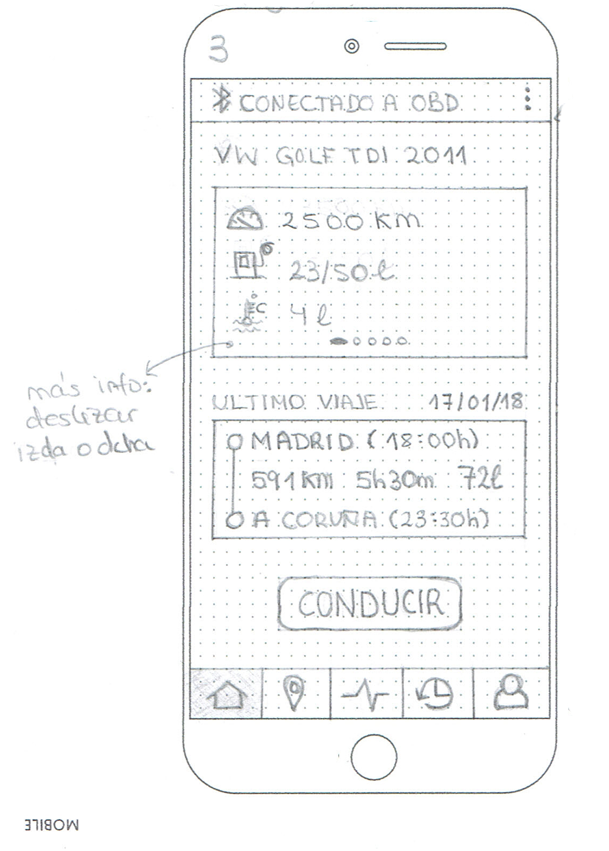 3
CONECTADO A OBD
VW GOLF TDI 2011
2500 km
23/50 l
C
4 l
más info:
deslizar
izda o dcha
ULTIMO VIAJE 17/01/18
MADRID (18:00h)
591 Km 5h30m 72l
A CORUÑA (23:30h)
CONDUCIR
MOBILE